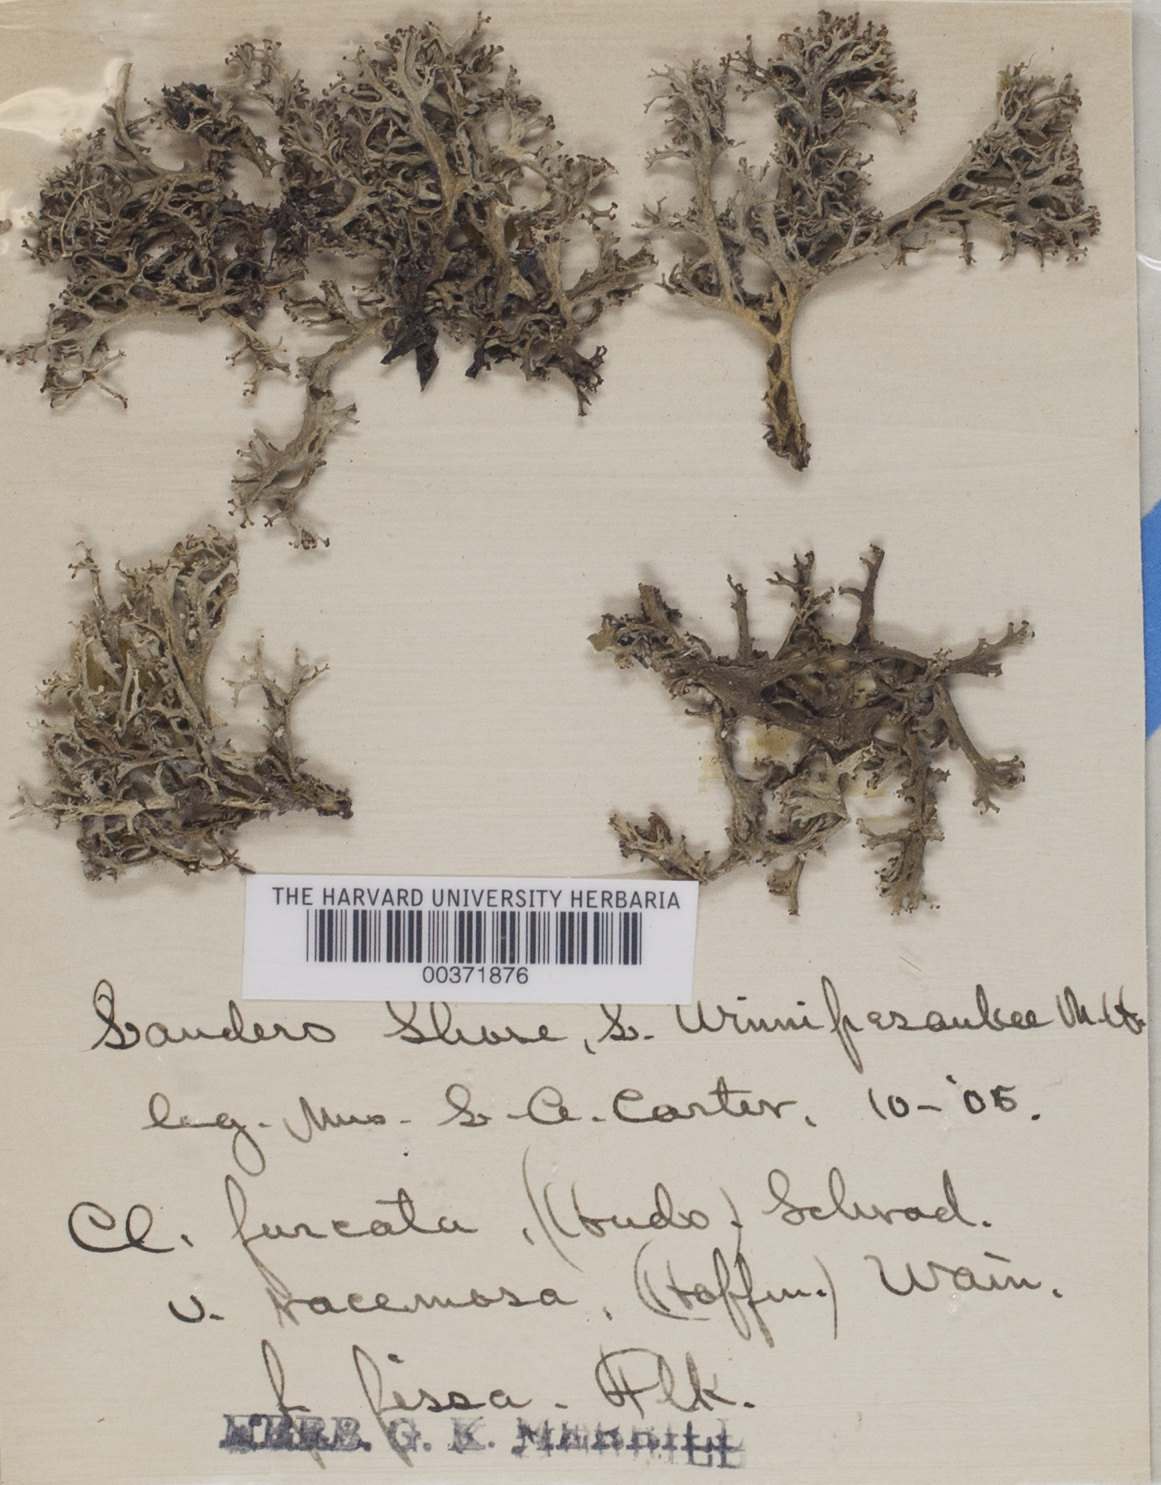 THE HARVARD UNIVERSITY HERBARIA
00371876
Sanders Shore, S. Winnipesaukee N.H.
leg. Mrs. S. A. Carter, 10-'05.
Cl. furcata, (Huds.) Schrad.
v. racemosa, (Hoffm.) Wain.
f. fissa. Flk.
HERB. G. K. MERRILL